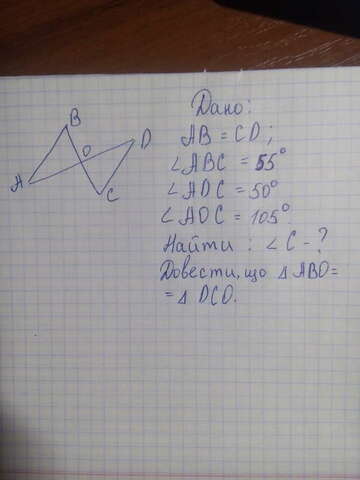 Дано:
B
AB = CD;
D
O
∠ABC = 55°
A
∠ADC = 50°
C
∠AOC = 105°
Найти: ∠C - ?
Довести, що △ ABO =
= △ DCO.